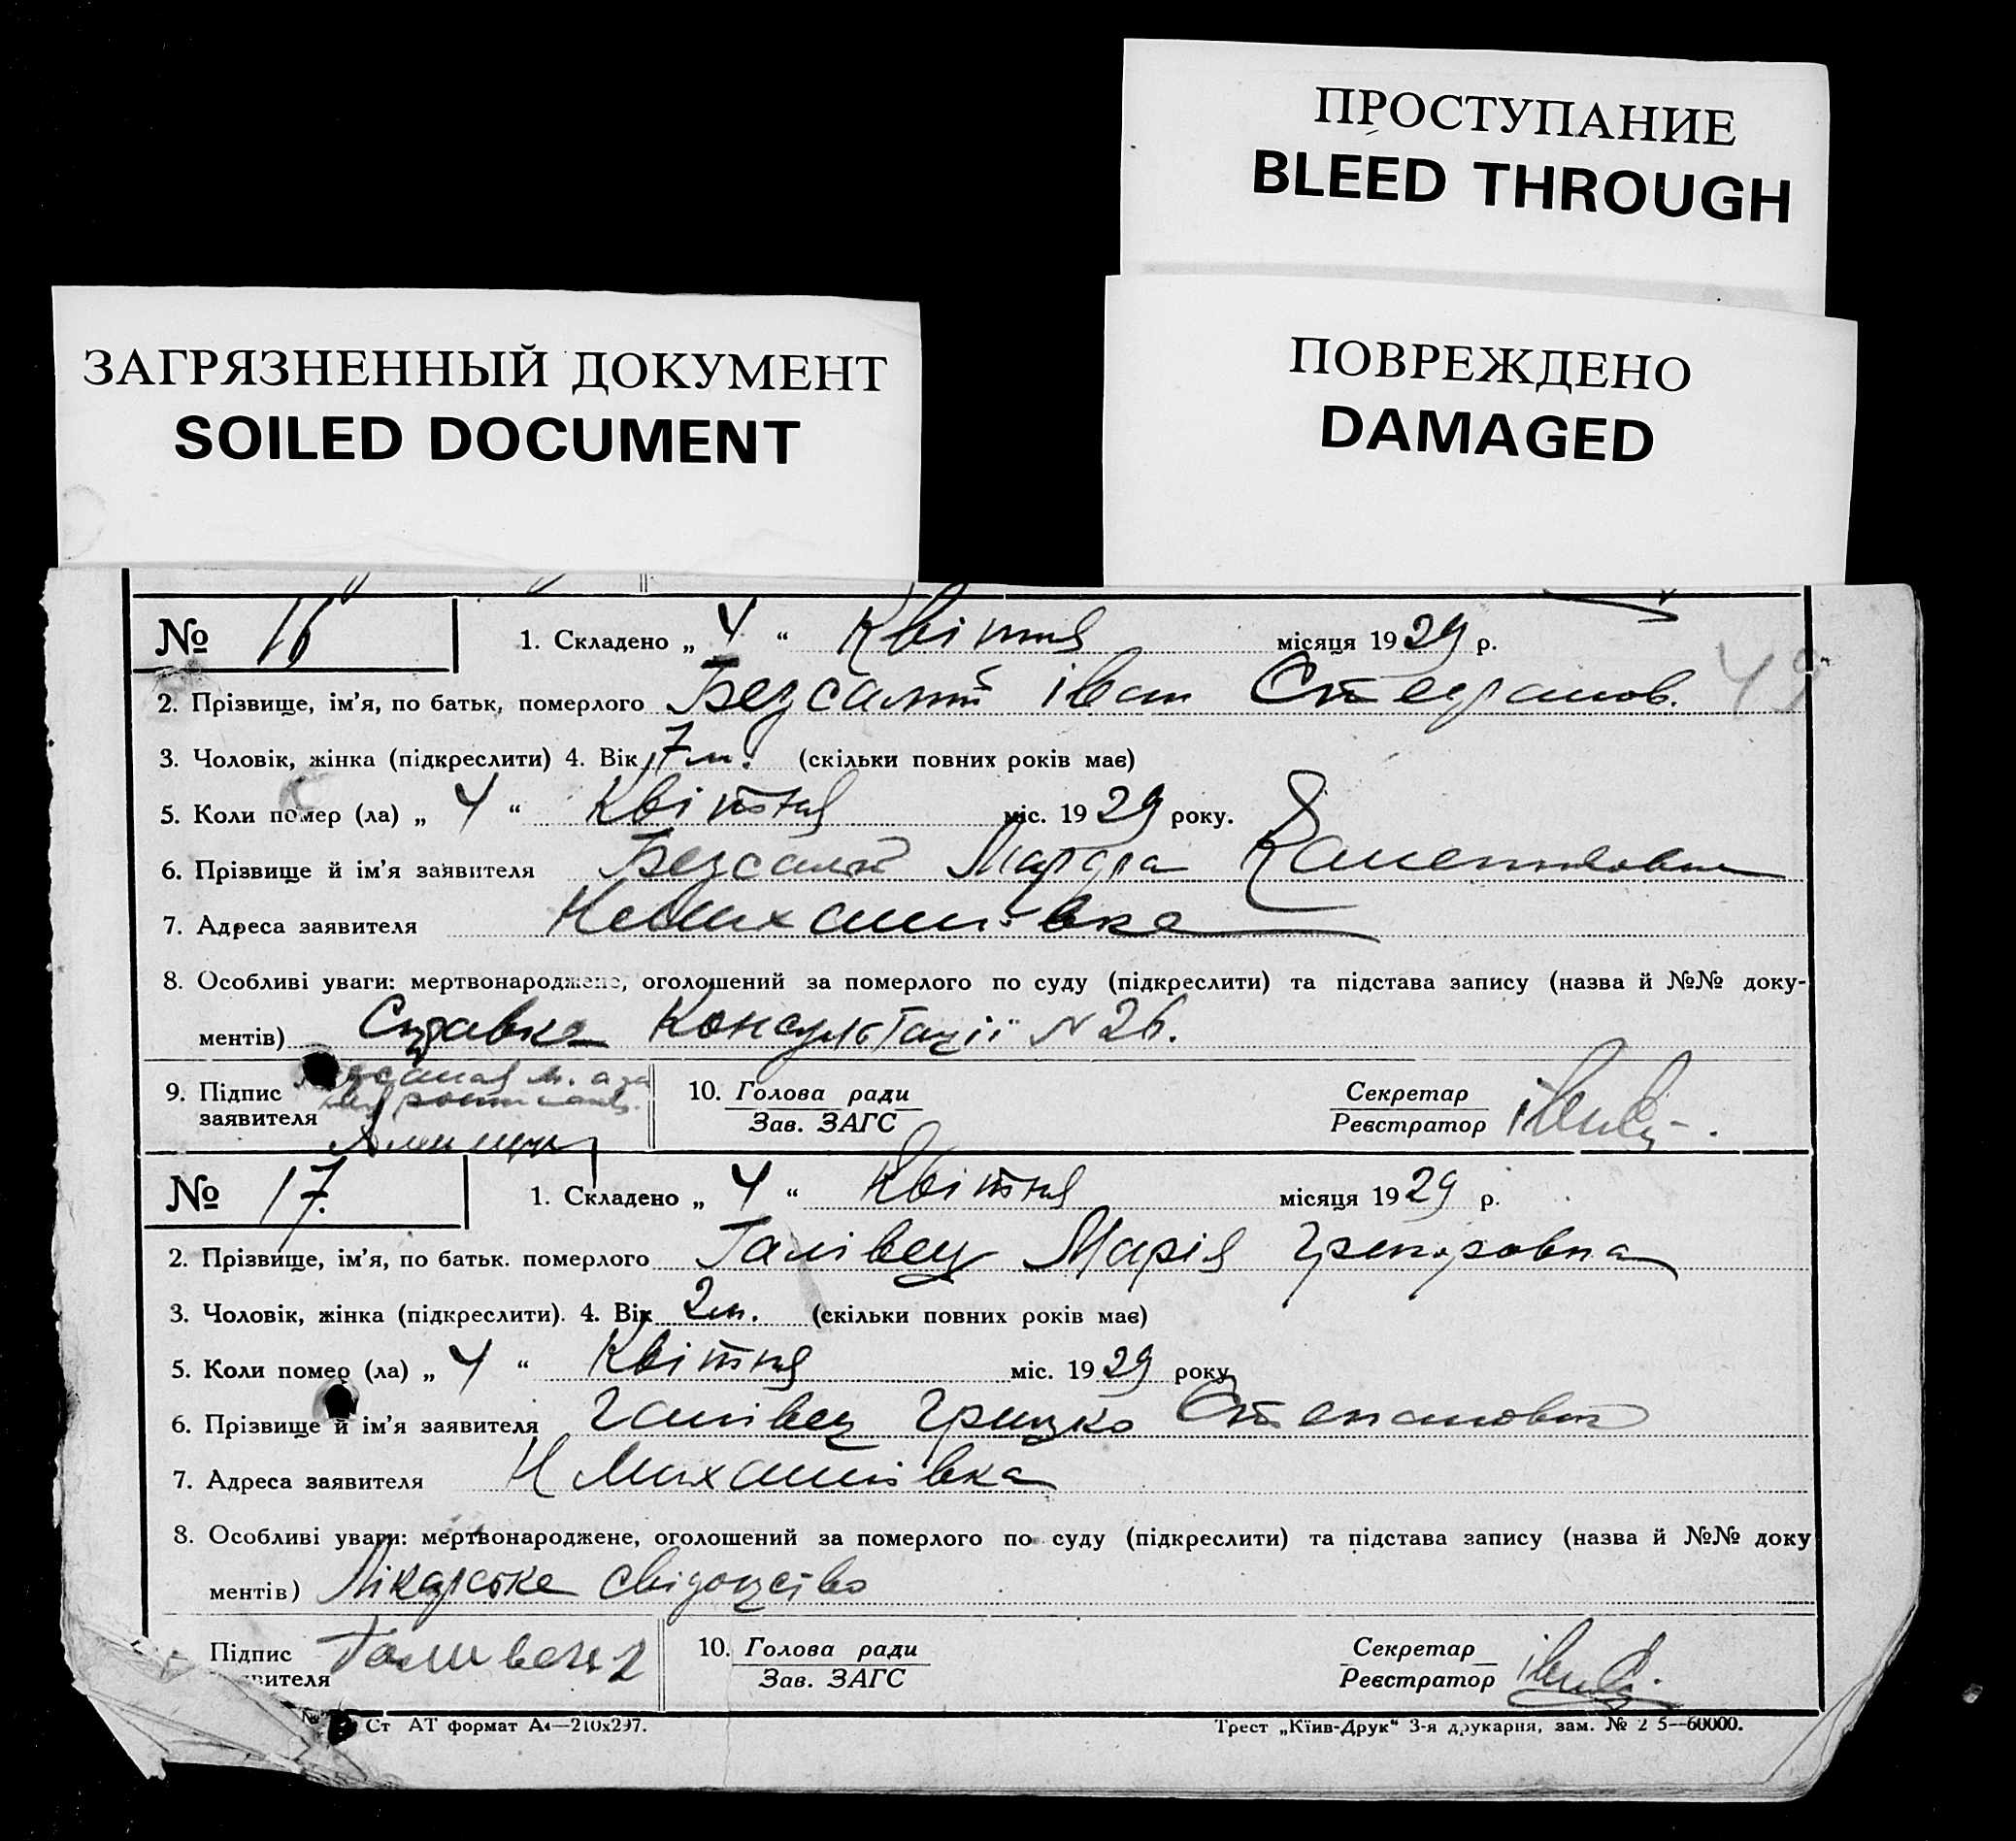 ПРОСТУПАНИЕ
BLEED THROUGH
ЗАГРЯЗНЕННЫЙ ДОКУМЕНТ
SOILED DOCUMENT
ПОВРЕЖДЕНО
DAMAGED
№ 16 1. Складено „ 4 “ Квітня місяця 1929 р.
49
2. Прізвище, ім'я, по батьк, померлого Безсалий іван Степанов.
3. Чоловік, жінка (підкреслити) 4. Вік 7 м. (скільки повних років має)
5. Коли помер (ла) „ 4 “ Квітня міс. 1929 року.
6. Прізвище й ім'я заявителя Безсалий
7. Адреса заявителя
8. Особливі уваги: мертвонароджене, оголошений за померлого по суду (підкреслити) та підстава запису (назва й №№ доку-
ментів) Справка Консультації N 26.
9. Підпис заявителя
10. Голова ради Зав. ЗАГС Секретар Реєстратор
№ 17. 1. Складено „ 4 “ Квітня місяця 1929 р.
2. Прізвище, ім'я, по батьк. померлого Галівец Марія Григоровна
3. Чоловік, жінка (підкреслити). 4. Вік 2 м. (скільки повних років має)
5. Коли помер (ла) „ 4 “ Квітня міс. 1929 року
6. Прізвище й ім'я заявителя Галівец Грицко Степанович
7. Адреса заявителя Н Михайлівка
8. Особливі уваги: мертвонароджене, оголошений за померлого по суду (підкреслити) та підстава запису (назва й №№ доку
ментів) Лікарське свідоцтво
Підпис вителя
10. Голова ради Зав. ЗАГС Секретар Реєстратор
Ст АТ формат А4—210х297. Трест „Київ-Друк“ 3-я друкарня, зам. № 2 5—60000.